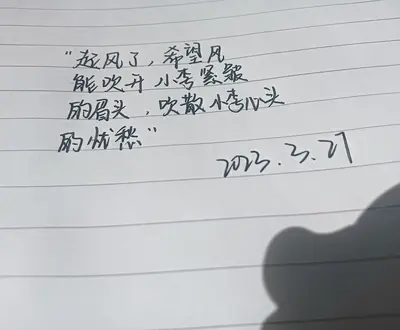 "起风了，希望风
能吹开小李紧皱
的眉头，吹散小李心头
的忧愁"
2023.3.27